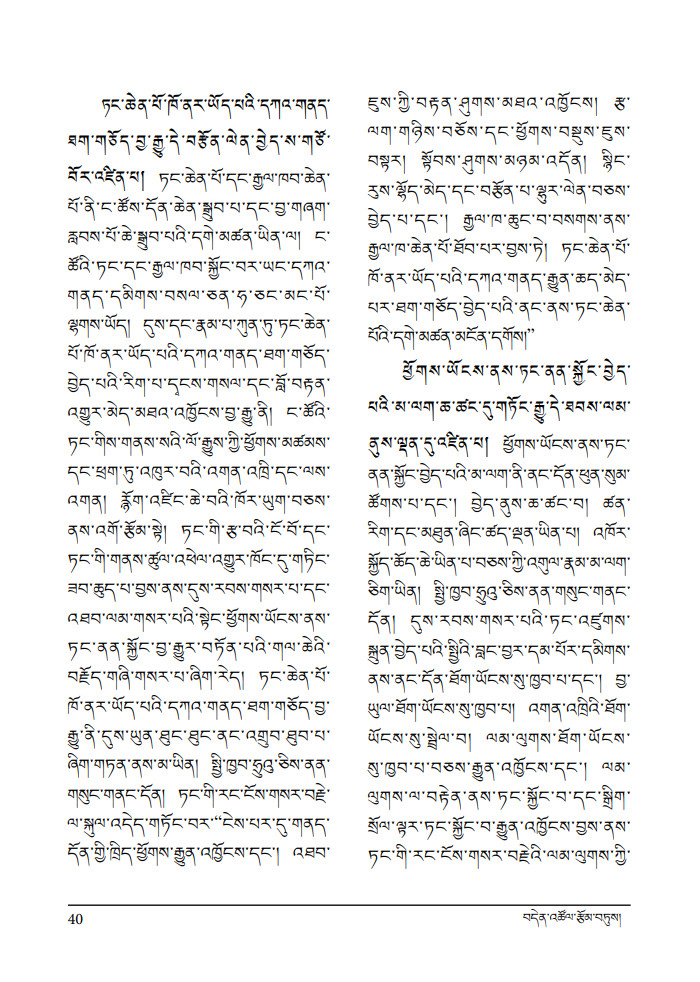 ཏང་ཆེན་པོ་ཁོ་ནར་ཡོད་པའི་དཀའ་གནད་
ཐག་གཅོད་བྱ་རྒྱུ་དེ་བརྩོན་ལེན་བྱེད་ས་གཙོ་
བོར་འཛིན་པ། ཏང་ཆེན་པོ་དང་རྒྱལ་ཁབ་ཆེན་
པོ་ནི་ང་ཚོས་དོན་ཆེན་སྒྲུབ་པ་དང་བྱ་གཞག་
རླབས་པོ་ཆེ་སྒྲུབ་པའི་དགེ་མཚན་ཡིན་ལ། ང་
ཚོའི་ཏང་དང་རྒྱལ་ཁབ་སྐྱོང་བར་ཡང་དཀའ་
གནད་དམིགས་བསལ་ཅན་ཧ་ཅང་མང་པོ་
ལྷགས་ཡོད། དུས་དང་རྣམ་པ་ཀུན་ཏུ་ཏང་ཆེན་
པོ་ཁོ་ནར་ཡོད་པའི་དཀའ་གནད་ཐག་གཅོད་
བྱེད་པའི་རིག་པ་དྭངས་གསལ་དང་བློ་བརྟན་
འགྱུར་མེད་མཐའ་འཁྱོངས་བྱ་རྒྱུ་ནི། ང་ཚོའི་
ཏང་གིས་གནས་སའི་ལོ་རྒྱུས་ཀྱི་ཕྱོགས་མཚམས་
དང་ཕྲག་ཏུ་འཁུར་བའི་འགན་འཁྲི་དང་ལས་
འགན། རྙོག་འཛིང་ཆེ་བའི་ཁོར་ཡུག་བཅས་
ནས་འགོ་རྩོམ་སྟེ། ཏང་གི་རྩ་བའི་ངོ་བོ་དང་
ཏང་གི་གནས་ཚུལ་འཕེལ་འགྱུར་ཁོང་དུ་གཏིང་
ཟབ་ཆུད་པ་བྱས་ནས་དུས་རབས་གསར་པ་དང་
འཐབ་ལམ་གསར་པའི་སྟེང་ཕྱོགས་ཡོངས་ནས་
ཏང་ནན་སྐྱོང་བྱ་རྒྱུར་བཏོན་པའི་གལ་ཆེའི་
བརྗོད་གཞི་གསར་པ་ཞིག་རེད། ཏང་ཆེན་པོ་
ཁོ་ནར་ཡོད་པའི་དཀའ་གནད་ཐག་གཅོད་བྱ་
རྒྱུ་ནི་དུས་ཡུན་ཐུང་ཐུང་ནང་འགྲུབ་ཐུབ་པ་
ཞིག་གཏན་ནས་མ་ཡིན། སྤྱི་ཁྱབ་ཧྲུའུ་ཅིས་ནན་
གསུང་གནང་དོན། ཏང་གི་རང་ངོས་གསར་བརྗེ་
ལ་སྐུལ་འདེད་གཏོང་བར་“ངེས་པར་དུ་གནད་
དོན་གྱི་ཁྲིད་ཕྱོགས་རྒྱུན་འཁྱོངས་དང་། འཐབ་
ཇུས་ཀྱི་བརྟན་ཤུགས་མཐའ་འཁྱོངས། རྩ་
ལག་གཉིས་བཅོས་དང་ཕྱོགས་བསྡུས་ཇུས་
བསྟར། སྟོབས་ཤུགས་མཉམ་འདོན། སྙིང་
རུས་ལྷོད་མེད་དང་བརྩོན་པ་ལྷུར་ལེན་བཅས་
བྱེད་པ་དང་། རྒྱལ་ཁ་ཆུང་བ་བསགས་ནས་
རྒྱལ་ཁ་ཆེན་པོ་ཐོབ་པར་བྱས་ཏེ། ཏང་ཆེན་པོ་
ཁོ་ནར་ཡོད་པའི་དཀའ་གནད་རྒྱུན་ཆད་མེད་
པར་ཐག་གཅོད་བྱེད་པའི་ནང་ནས་ཏང་ཆེན་
པོའི་དགེ་མཚན་མངོན་དགོས།”
ཕྱོགས་ཡོངས་ནས་ཏང་ནན་སྐྱོང་བྱེད་
པའི་མ་ལག་ཆ་ཚང་དུ་གཏོང་རྒྱུ་དེ་ཐབས་ལམ་
ནུས་ལྡན་དུ་འཛིན་པ། ཕྱོགས་ཡོངས་ནས་ཏང་
ནན་སྐྱོང་བྱེད་པའི་མ་ལག་ནི་ནང་དོན་ཕུན་སུམ་
ཚོགས་པ་དང་། བྱེད་ནུས་ཆ་ཚང་བ། ཚན་
རིག་དང་མཐུན་ཞིང་ཚད་ལྡན་ཡིན་པ། འཁོར་
སྐྱོད་ཚོད་ཆེ་ཡིན་པ་བཅས་ཀྱི་འགུལ་རྣམ་མ་ལག་
ཅིག་ཡིན། སྤྱི་ཁྱབ་ཧྲུའུ་ཅིས་ནན་གསུང་གནང་
དོན། དུས་རབས་གསར་པའི་ཏང་འཛུགས་
སྐྲུན་བྱེད་པའི་སྤྱིའི་བླང་བྱར་དམ་པོར་དམིགས་
ནས་ནང་དོན་ཐོག་ཡོངས་སུ་ཁྱབ་པ་དང་། བྱ་
ཡུལ་ཐོག་ཡོངས་སུ་ཁྱབ་པ། འགན་འཁྲིའི་ཐོག་
ཡོངས་སུ་སྦྲེལ་བ། ལམ་ལུགས་ཐོག་ཡོངས་
སུ་ཁྱབ་པ་བཅས་རྒྱུན་འཁྱོངས་དང་། ལམ་
ལུགས་ལ་བརྟེན་ནས་ཏང་སྐྱོང་བ་དང་སྒྲིག་
སྲོལ་ལྟར་ཏང་སྐྱོང་བ་རྒྱུན་འཁྱོངས་བྱས་ནས་
ཏང་གི་རང་ངོས་གསར་བརྗེའི་ལམ་ལུགས་ཀྱི་
40
བདེན་འཚོལ་རྩོམ་བཏུས།